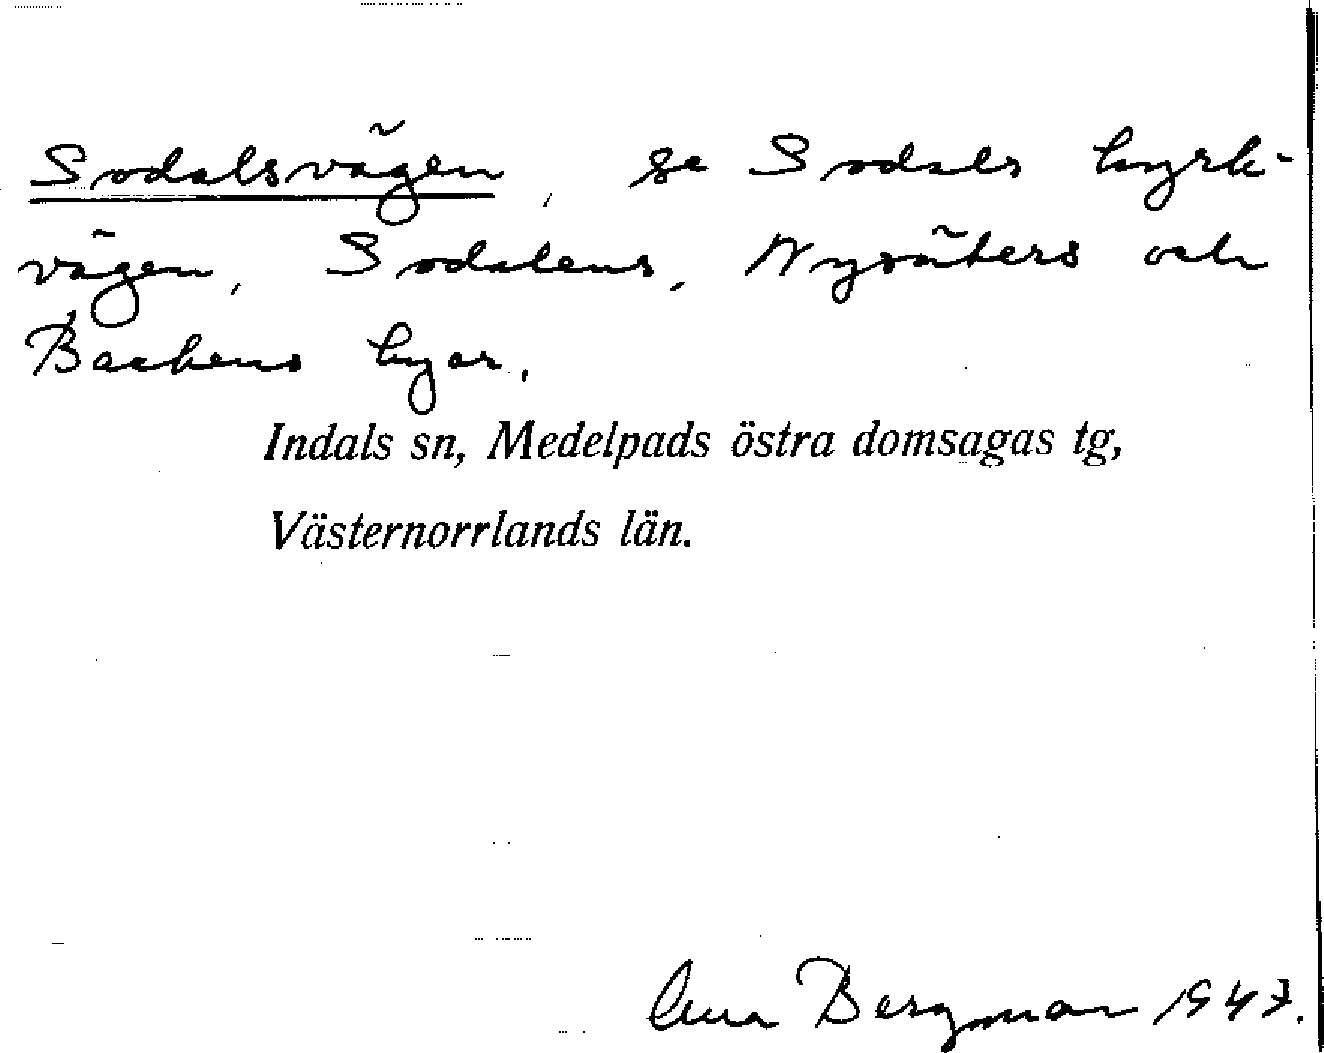 Sodalsvägen, se Sodals kyrk-
vägen, Sodalens, Nysäters och
Backens byar.
Indals sn, Medelpads östra domsagas tg,
Västernorrlands län.
Bergman 1947.